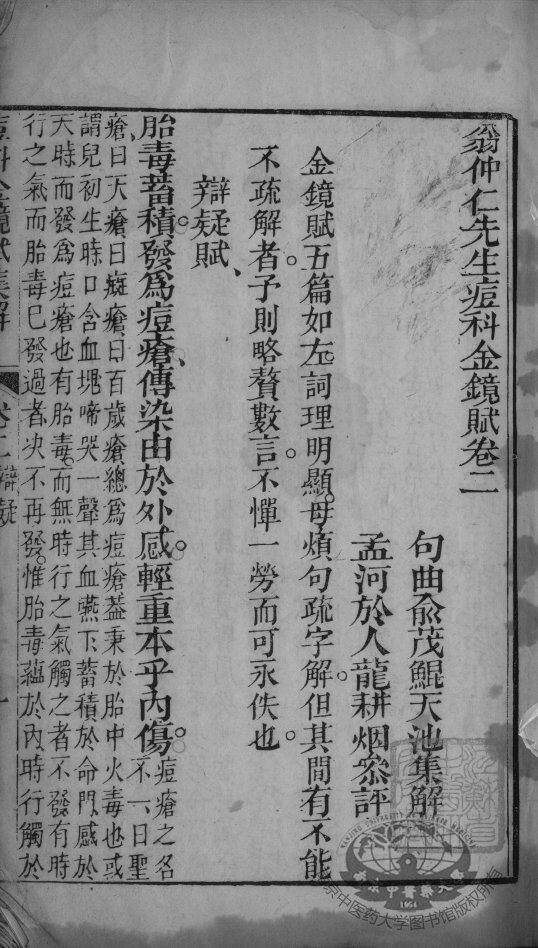 翁仲仁先生痘科金鏡賦卷二
句曲俞茂鯤天池集解
孟河於人龍耕烟叅評
金鏡賦五篇如左詞理明顯毋煩句疏字解但其間有不能
不疏解者。予則略贅數言。不憚一勞而可永佚也。
辯疑賦、
胎毒蓄積。發爲痘瘡、傳染由於外感。輕重本乎內傷。痘瘡之名
不一、曰聖
瘡曰天瘡曰痴瘡曰百歲瘡總爲痘瘡葢秉於胎中火毒也或
謂兒初生時口含血塊啼哭一聲其血嚥下蓄積於命門感於
天時而發爲痘瘡也有胎毒而無時行之氣觸之者不發有時
行之氣而胎毒已發過者决不再發惟胎毒蘊於內時行觸於
痘科金鏡賦集解
卷二 辯疑
一
南京中医药大学图书馆版权所有
1954